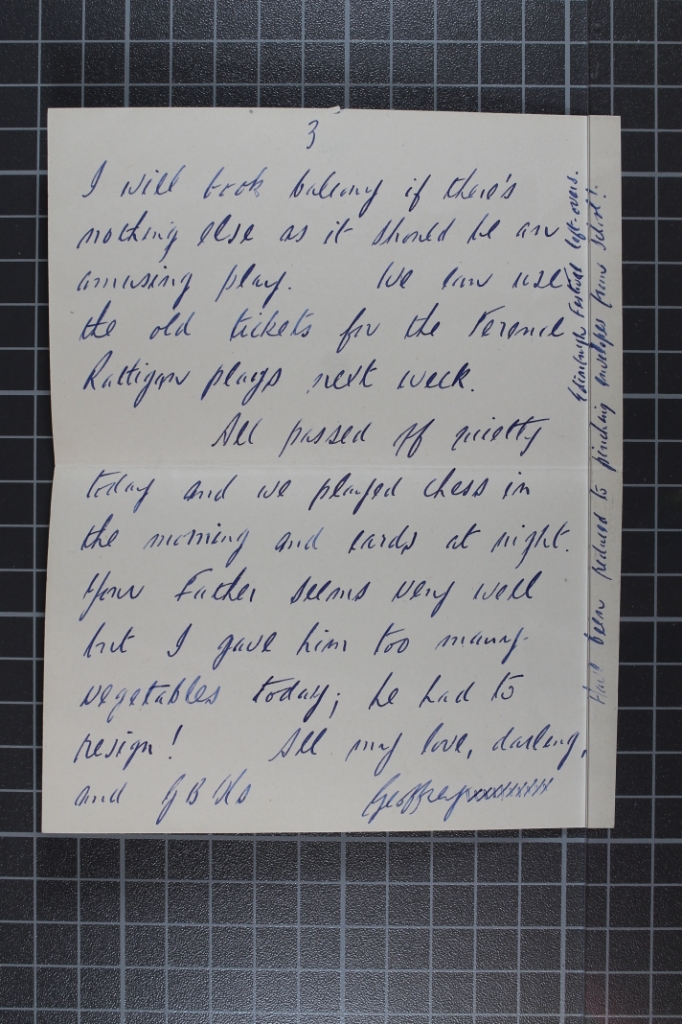 3
I will book balcony if there's
nothing else as it should be an
amusing play. We can use
the old tickets for the Terence
Rattigan plays next week.
All passed off quietly
today and we played chess in
the morning and cards at night.
Your Father seems very well
but I gave him too many
vegetables today; he had to
resign! All my love, darling,
and G B Hs Geoffreyxxxxxxxxx
Edinburgh Festival left-overs.
Have been reduced to pinching envelopes from school!